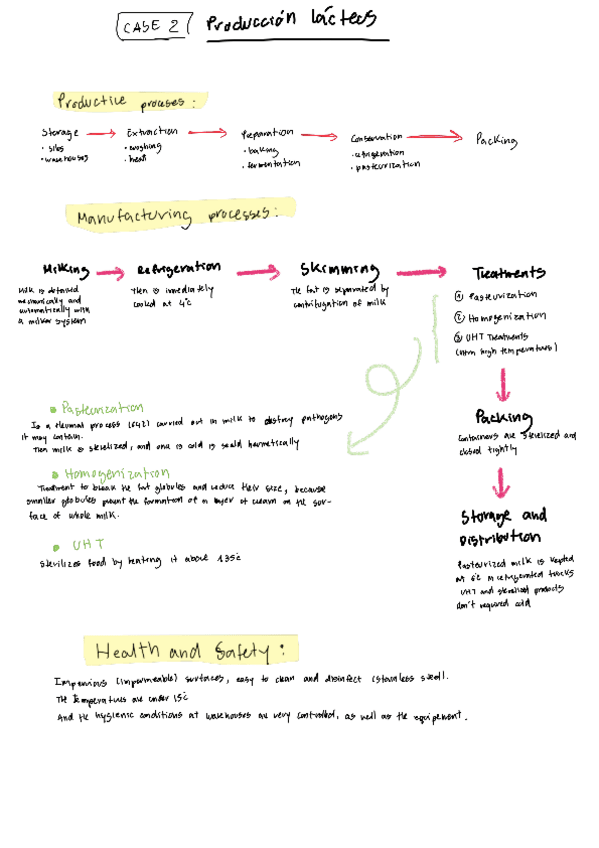 CASE 2 Producción lácteos
Productive proceses:
Storage Extraction Preparation Conservation Packing
• silos • washing • baking • refrigeration
• warehouses • heat • fermentation • pasteurization
Manufacturing processes:
Milking Refrigeration Skimming Treatments
Milk is obtained
mechanically and
automatically with
a milker system
Then is inmediately
cooled at 4°c
The fat is separated by
centrifugation of milk
① Pasteurization
② Homogenization
③ UHT Treatments
(Ultra high temperatures)
• Pasteurization
Is a thermal process carried out in milk to destroy pathogens
it may contain.
Then milk is sterilized, and once is cold is seald hermetically
• Homogenization
Treatment to break the fat globules and reduce their size, because
smaller globules prevent the formation of a layer of cream on the sur-
face of whole milk.
• UHT
Sterilizes food by heating it above 135°c
Packing
Containers are sterilized and
closed tightly
Storage and
Distribution
Pasteurized milk is kepted
at 6°c in refrigerated trucks
UHT and sterilized products
don't required cold
Health and Safety:
Impervious (impermeable) surfaces, easy to clean and disinfect (stainless steell.
The temperatures are under 15°c
And the hygienic conditions at warehouses are very controlled, as well as the equipement.